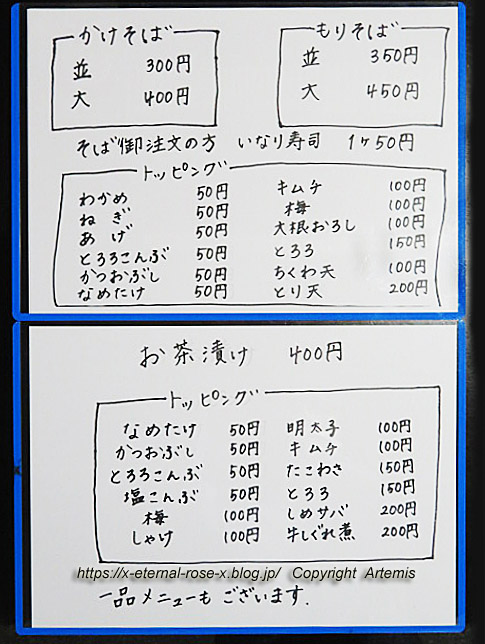 かけそば
並 300円
大 400円
もりそば
並 350円
大 450円
そば御注文の方 いなり寿司 1ヶ50円
トッピング
わかめ 50円
ねぎ 50円
あげ 50円
とろろこんぶ 50円
かつおぶし 50円
なめたけ 50円
キムチ 100円
梅 100円
大根おろし 100円
とろろ 150円
ちくわ天 100円
とり天 200円
お茶漬け 400円
トッピング
なめたけ 50円
かつおぶし 50円
とろろこんぶ 50円
塩こんぶ 50円
梅 100円
しゃけ 100円
明太子 100円
キムチ 100円
たこわさ 150円
とろろ 150円
しめサバ 200円
牛しぐれ煮 200円
https://x-eternal-rose-x.blog.jp/ Copyright Artemis
一品メニューも ございます.